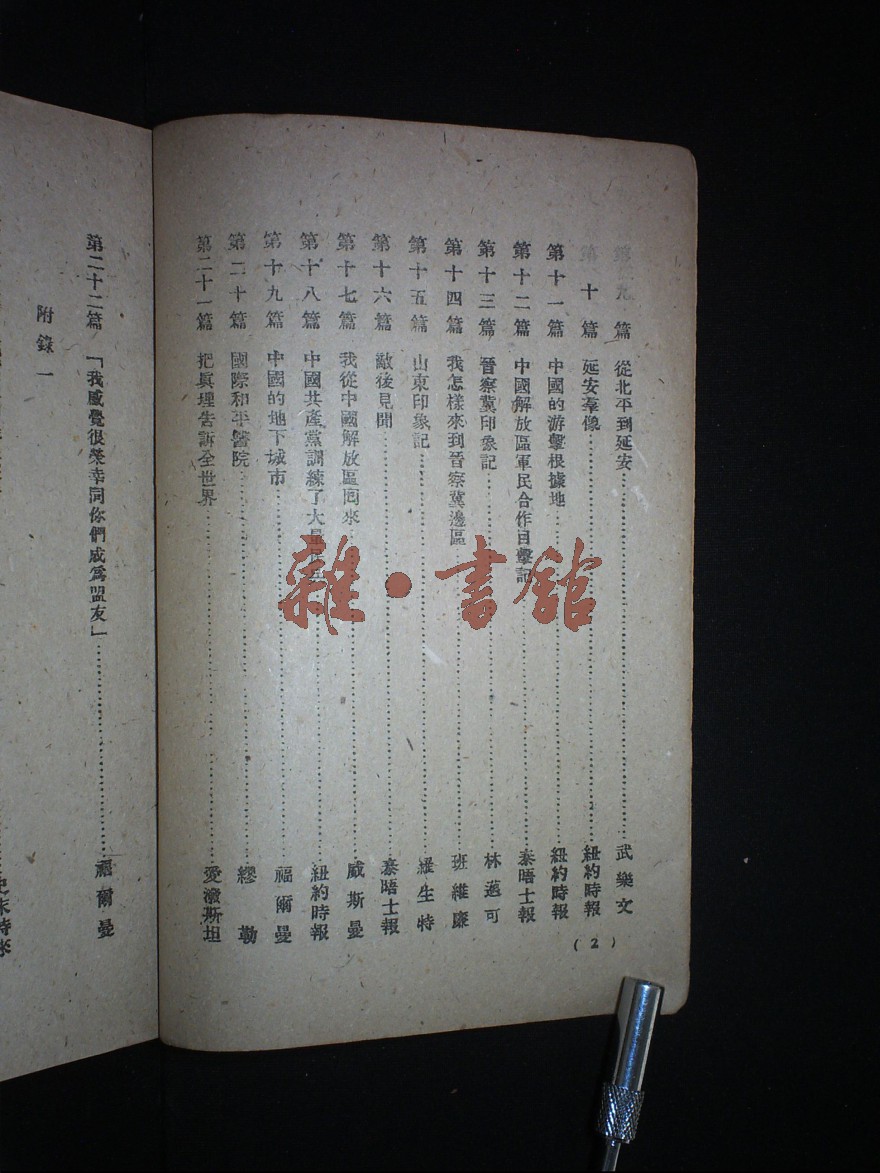 第九篇 從北平到延安 武樂文
第十篇 延安羣像 紐約時報
第十一篇 中國的游擊根據地 紐約時報
第十二篇 中國解放區軍民合作目擊記 泰晤士報
第十三篇 晉察冀印象記 林邁可
第十四篇 我怎樣來到晉察冀邊區 班維廉
第十五篇 山東印象記 羅生特
第十六篇 敵後見聞 泰晤士報
第十七篇 我從中國解放區囘來 威斯曼
第十八篇 中國共產黨訓練了大量民兵 紐約時報
第十九篇 中國的地下城市 福爾曼
第二十篇 國際和平醫院 繆勒
第二十一篇 把眞理告訴全世界 愛潑斯坦
(2)
第二十二篇 「我感覺很榮幸同你們成爲盟友」 福爾曼
附錄一
雜·書館